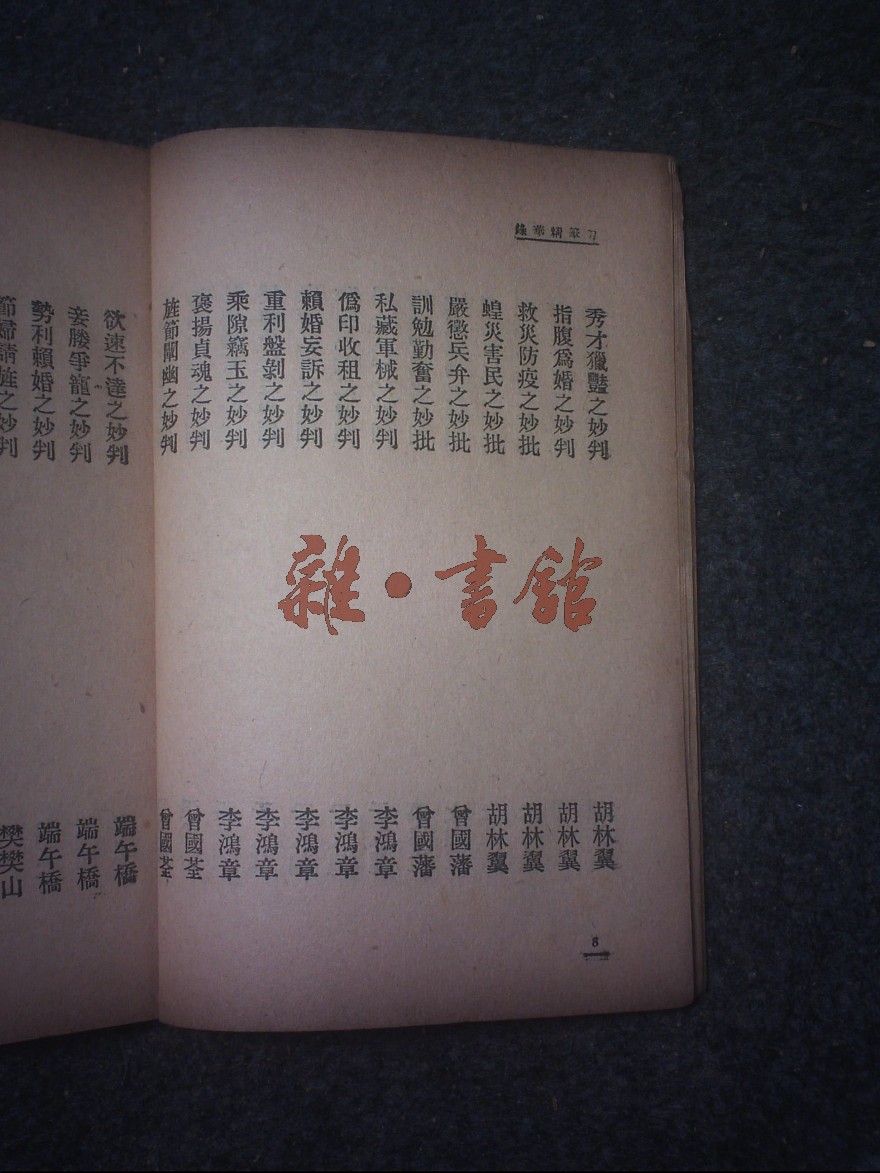 刀筆精華錄
秀才獵豔之妙判 胡林翼
指腹爲婚之妙判 胡林翼
救災防疫之妙批 胡林翼
蝗災害民之妙批 胡林翼
嚴懲兵弁之妙批 曾國藩
訓勉勤奮之妙批 曾國藩
私藏軍械之妙判 李鴻章
僞印收租之妙判 李鴻章
賴婚妄訴之妙判 李鴻章
重利盤剝之妙判 李鴻章
乘隙竊玉之妙判 李鴻章
褒揚貞魂之妙判 曾國荃
旌節闡幽之妙判 曾國荃
8
欲速不達之妙判 端午橋
妾媵爭寵之妙判 端午橋
勢利賴婚之妙判 端午橋
節婦請旌之妙判 樊樊山
雜·書館